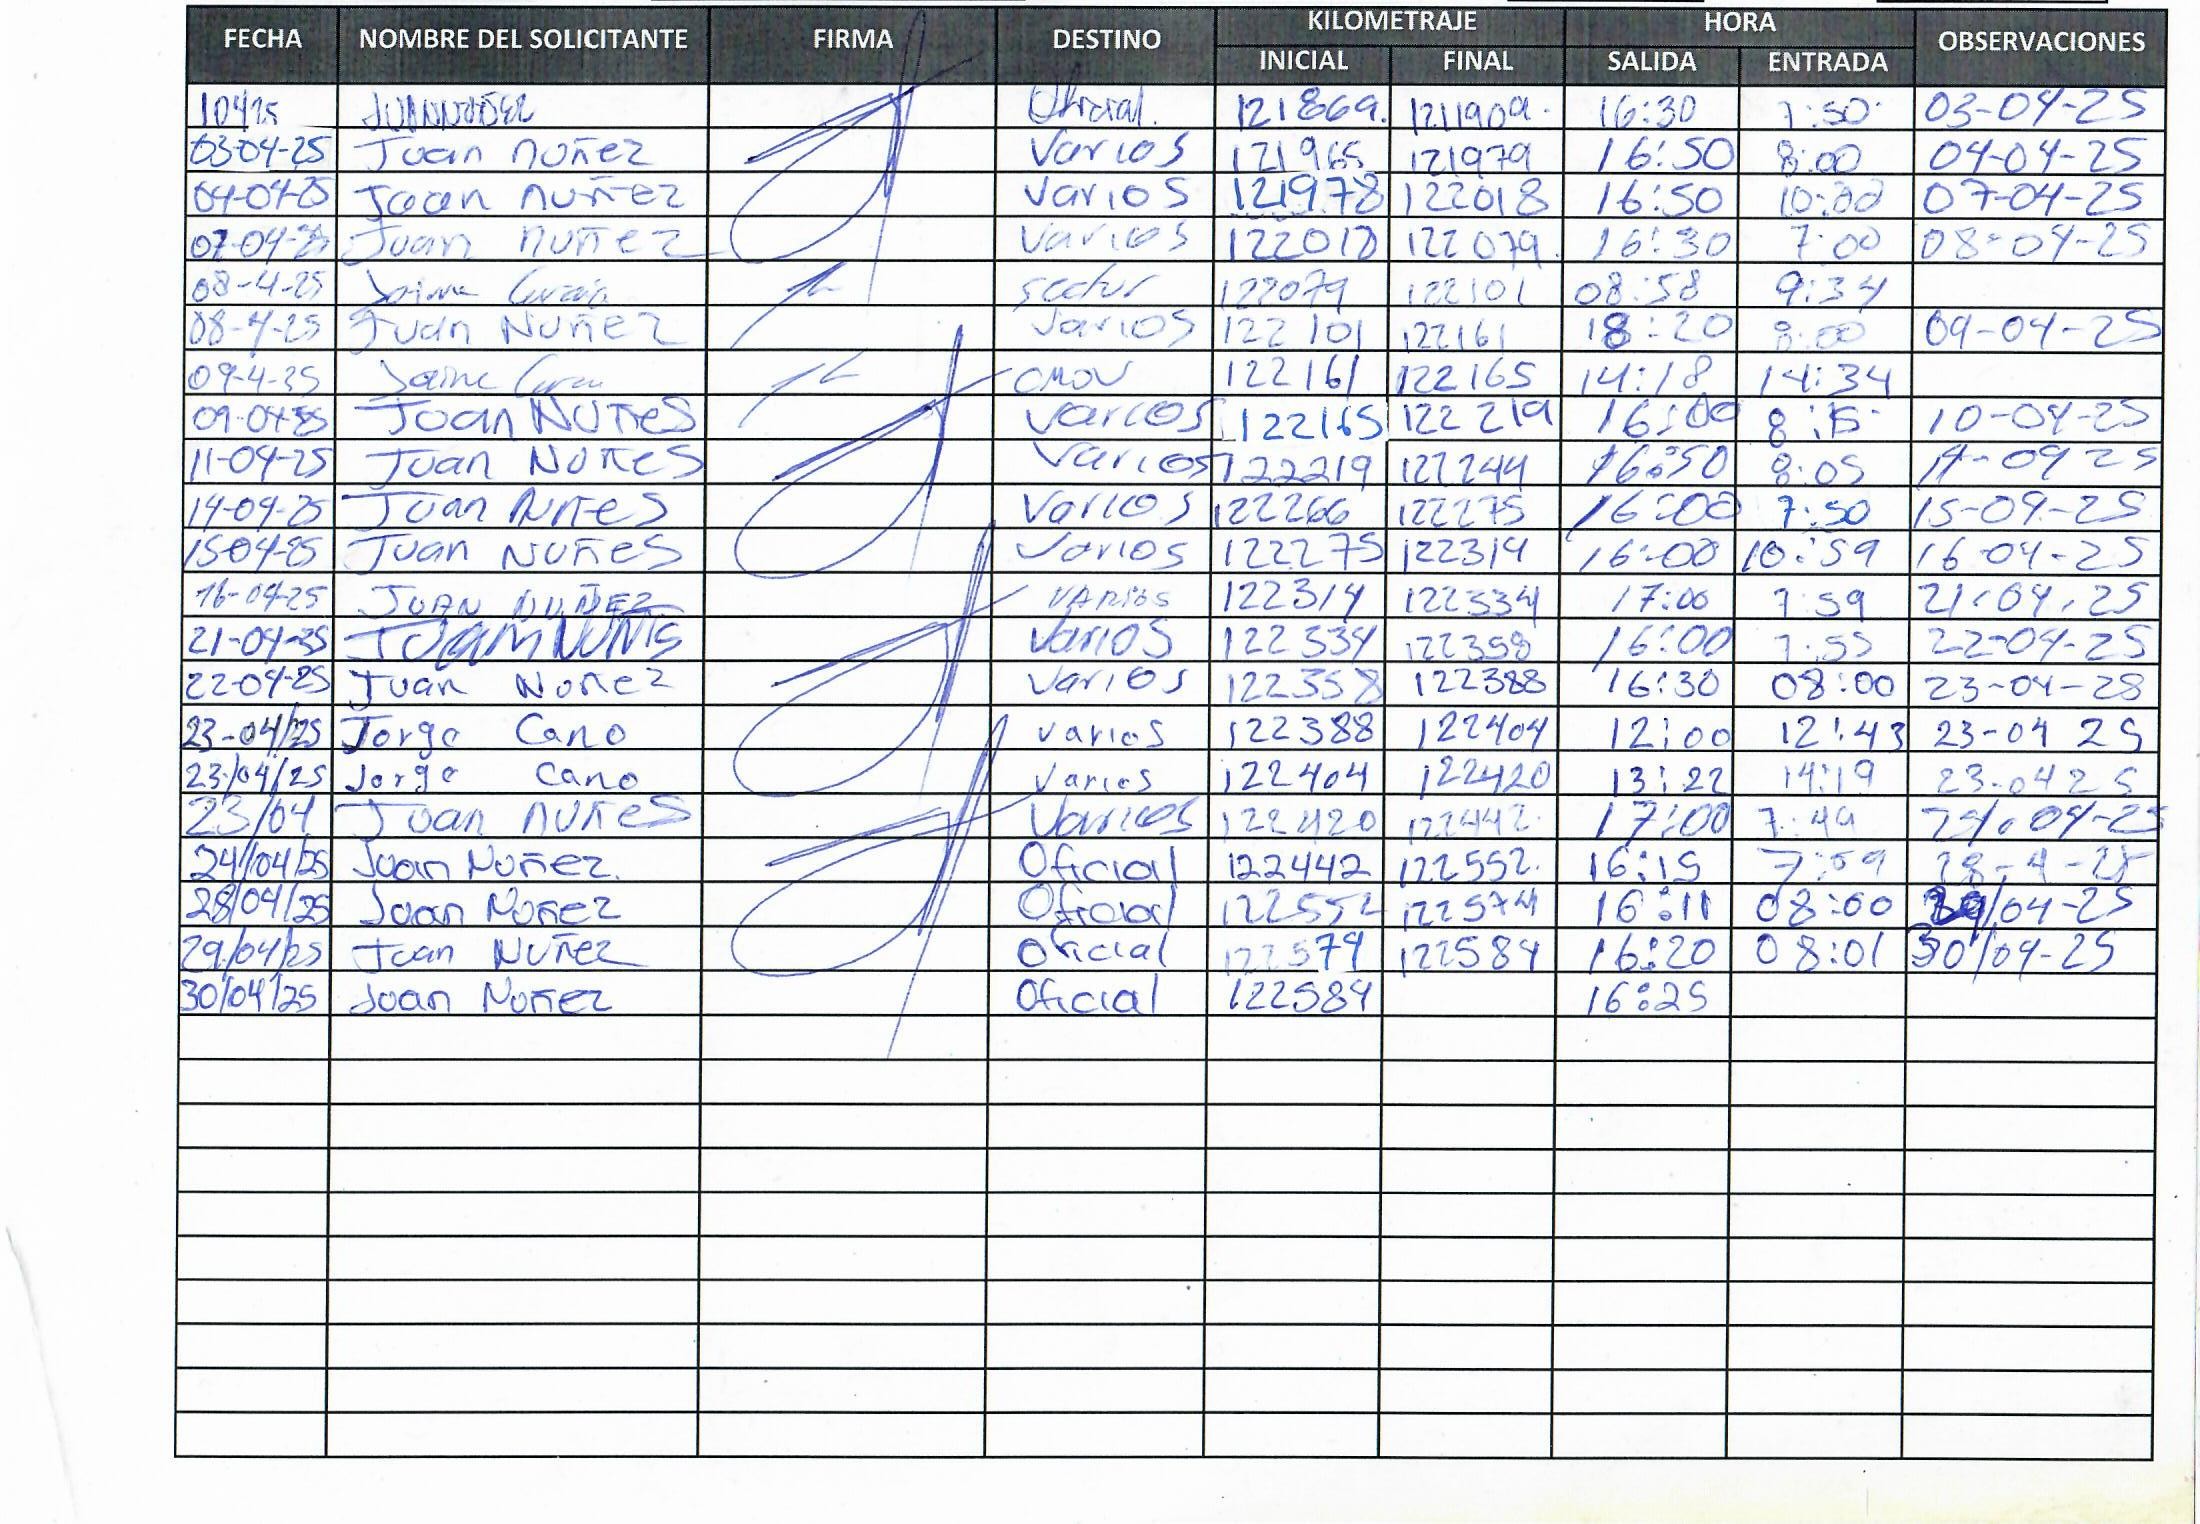 FECHA NOMBRE DEL SOLICITANTE FIRMA DESTINO KILOMETRAJE HORA OBSERVACIONES
INICIAL FINAL SALIDA ENTRADA
10425 JUAN NUÑEZ Oficial. 121869. 1211909. 16:30 7:50 03-04-25
03-04-25 Juan nuñez Varios 121965 121979 16:50 8:00 04-04-25
04-04-25 Juan nuñez Varios 121978 122018 16:50 10:00 07-04-25
07-04-25 Juan nuñez Varios 122018 122079. 16:30 7:00 08-04-25
08-4-25 Jaime sector 122079 122101 08:58 9:34
08-4-25 Juan Nuñez Varios 122101 122161 18:20 8:00 09-04-25
09-4-25 Jaime CMOV 122161 122165 14:18 14:34
09-04-25 Juan Nuñes varios 122165 122219 16:00 8:15 10-04-25
11-04-25 Juan Nuñes Varios 122219 122244 16:50 8:05 04 25
14-04-25 Juan Nuñes Varios 122266 122275 16:00 7:50 15-04-25
15-04-25 Juan Nuñes Varios 122275 122314 16:00 10:59 16-04-25
16-04-25 JUAN NUÑEZ VARIOS 122314 122334 17:00 7:59 21-04-25
21-04-25 Juan Nuñes Varios 122334 122358 16:00 7:55 22-04-25
22-04-25 Juan Nuñez Varios 122358 122388 16:30 08:00 23-04-28
23-04/25 Jorge Cano varios 122388 122404 12:00 12:43 23-04 25
23/04/25 Jorge Cano varios 122404 122420 13:22 14:19 23-04 25
23/04 Juan nuñes Varios 122420 122442 17:00 7:49 24-04-25
24/04/25 Juan Nuñez. Oficial 122442 122552. 16:15 7:59 28-4-25
28/04/25 Juan Nuñez Oficial 122552 122574 16:11 08:00 /04-25
29/04/25 Juan Nuñez Oficial 122574 122584 16:20 08:01 30/04-25
30/04/25 Juan Nuñez Oficial 122584 16:25